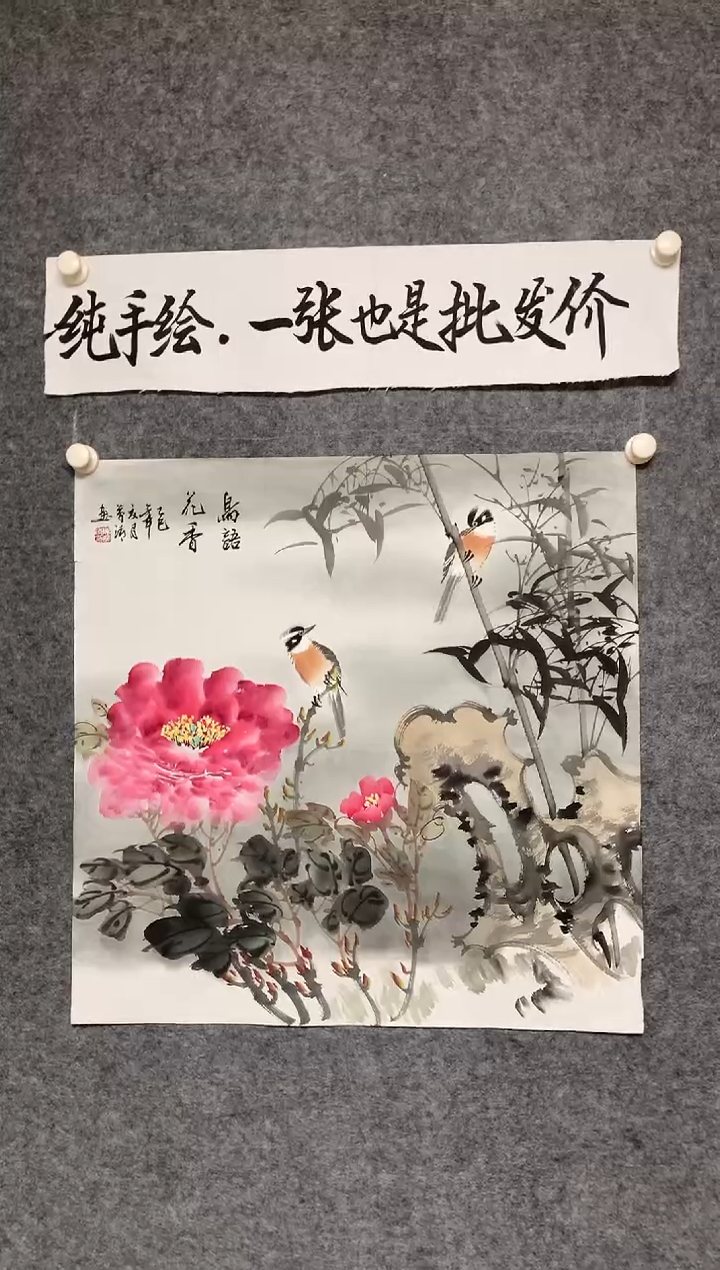 纯手绘.一张也是批发价
鳥語
花香
乙巳
年